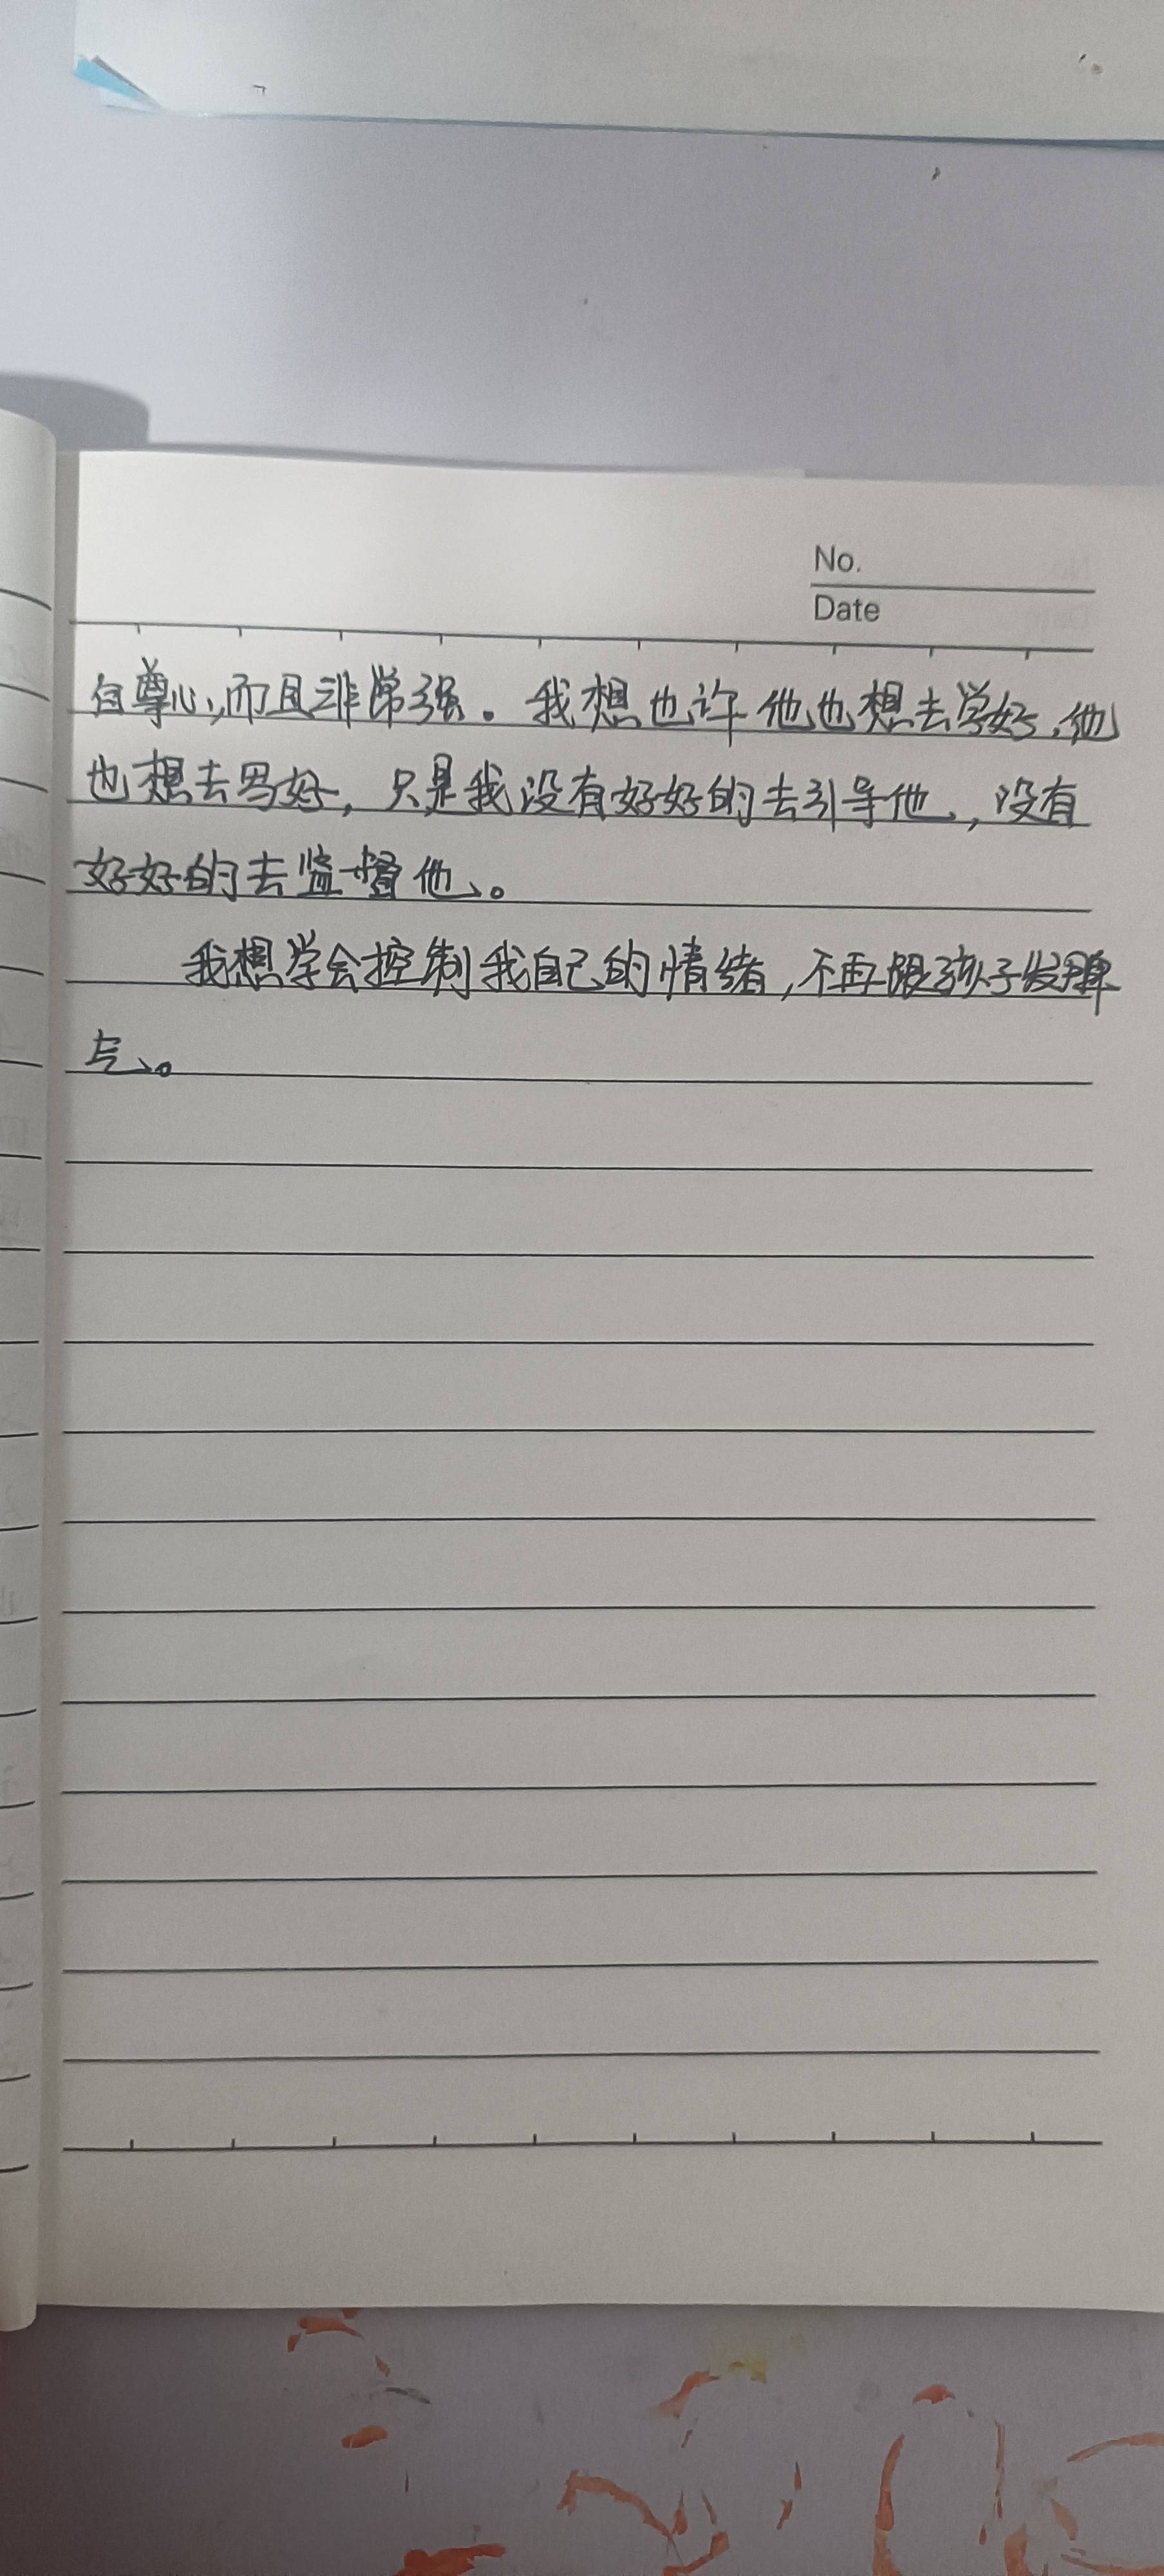 No.
Date
自尊心,而且非常强。我想也许他也想去学好,他
也想去写好,只是我没有好好的去引导他,没有
好好的去监督他。
我想学会控制我自己的情绪,不再跟孩子发脾
气。